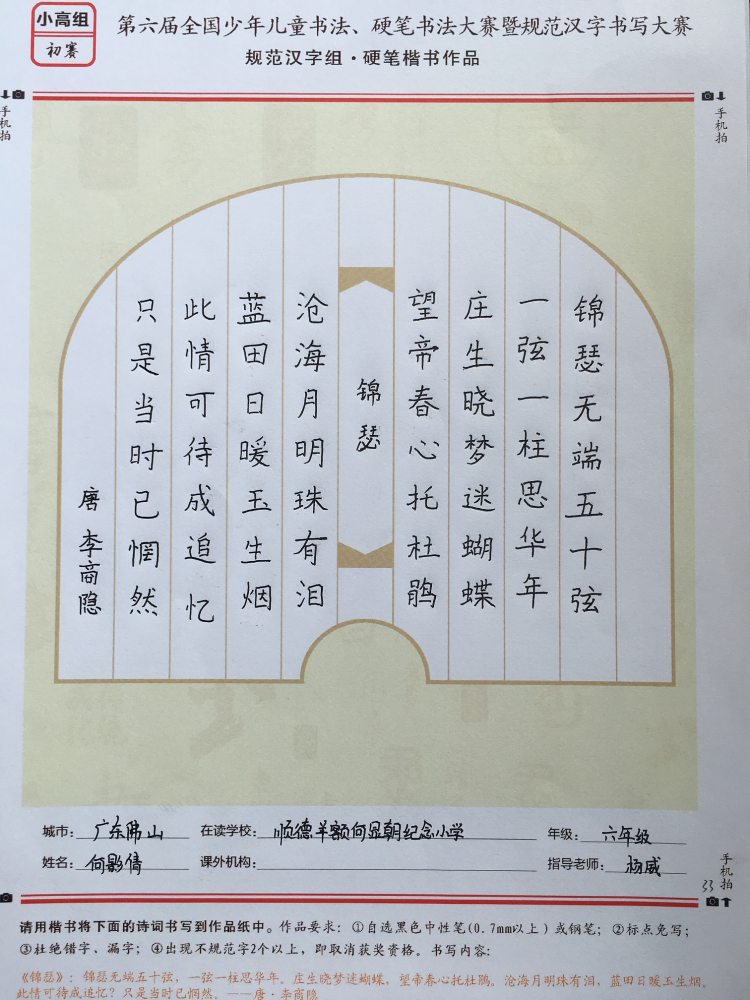 小高组
初赛
第六届全国少年儿童书法、硬笔书法大赛暨规范汉字书写大赛
规范汉字组·硬笔楷书作品
手机拍
手机拍
锦瑟无端五十弦
一弦一柱思华年
庄生晓梦迷蝴蝶
望帝春心托杜鹃
锦瑟
沧海月明珠有泪
蓝田日暖玉生烟
此情可待成追忆
只是当时已惘然
唐 李商隐
城市：广东佛山 在读学校：顺德羊额何显朝纪念小学 年级：六年级
姓名：何影倩 课外机构： 指导老师：杨威
手机拍
33
请用楷书将下面的诗词书写到作品纸中。作品要求：①自选黑色中性笔(0.7mm以上)或钢笔；②标点免写；
③杜绝错字、漏字；④出现不规范字2个以上，即取消获奖资格。书写内容：
《锦瑟》：锦瑟无端五十弦，一弦一柱思华年。庄生晓梦迷蝴蝶，望帝春心托杜鹃。沧海月明珠有泪，蓝田日暖玉生烟。
此情可待成追忆？只是当时已惘然。——唐·李商隐